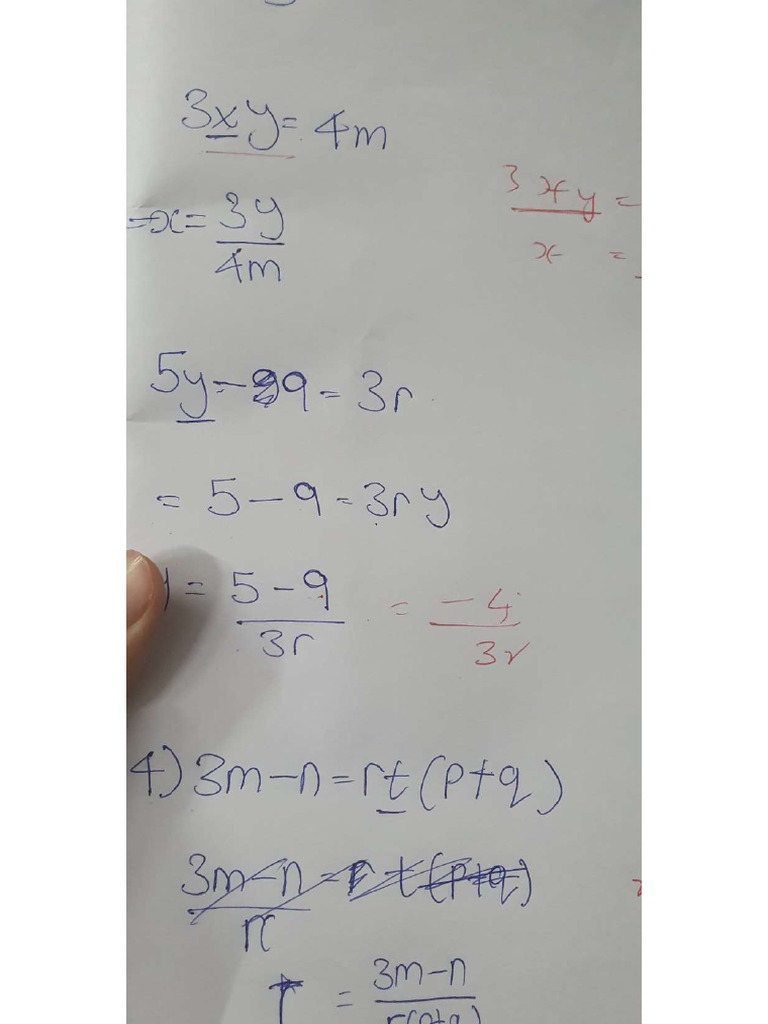 3xy = 4m
⇒ x = 3y / 4m
3xy =
x =
5y - 9 = 3r
= 5 - 9 = 3ry
= 5 - 9 / 3r = -4 / 3r
4) 3m - n = rt(p + q)
3m - n = r t(p+q)
= 3m - n / r(p+q)